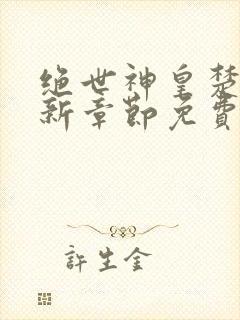 绝世神皇楚
新章節免費
許生金